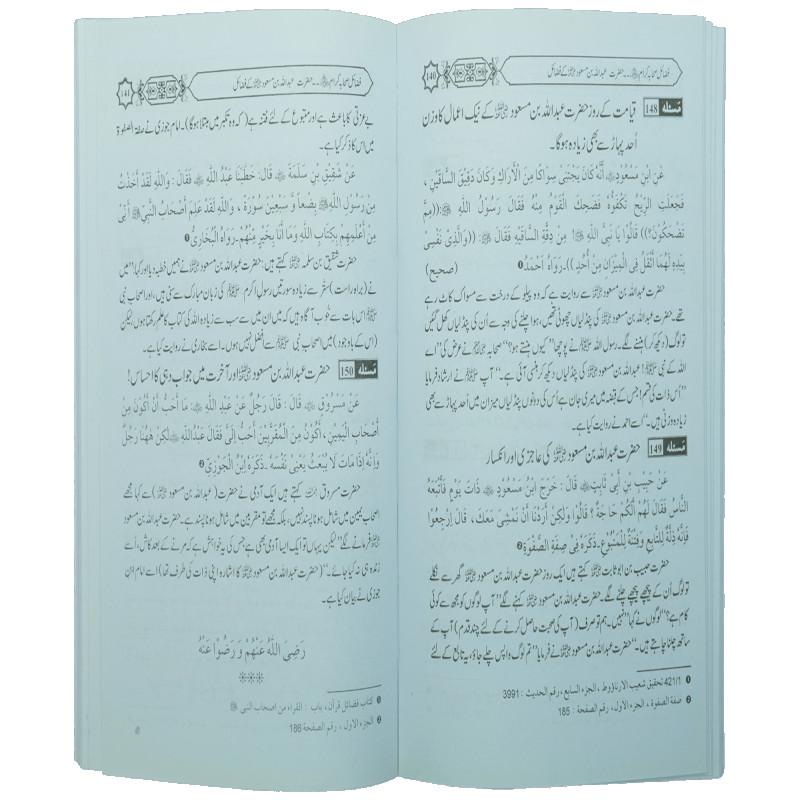 140
فضائل صحابہ کرام ﷢ ... حضرت عبداللہ بن مسعود ﷜ کے فضائل
مسئلہ 148 قیامت کے روز حضرت عبداللہ بن مسعود ﷜ کے نیک اعمال کا وزن
اُحد پہاڑ سے بھی زیادہ ہوگا۔
عَنِ ابْنِ مَسْعُوْدٍ ﷜ أَنَّهُ كَانَ يَجْتَنِي سِوَاكًا مِنَ الْأَرَاكِ وَكَانَ دَقِيْقَ السَّاقَيْنِ ،
فَجَعَلَتِ الرِّيْحُ تَكْفَؤُهُ فَضَحِكَ الْقَوْمُ مِنْهُ فَقَالَ رَسُوْلُ اللّٰهِ ﷺ ((مِمَّ
تَضْحَكُوْنَ؟)) قَالُوْا يَا نَبِيَّ اللّٰهِ ﷺ! مِنْ دِقَّةِ السَّاقَيْهِ فَقَالَ ﷺ: ((وَالَّذِي نَفْسِي
بِيَدِهِ لَهُمَا أَثْقَلُ فِي الْمِيْزَانِ مِنْ أُحُدٍ))۔ رَوَاهُ أَحْمَدُ ❶ (صحیح)
حضرت عبداللہ بن مسعود ﷜ سے روایت ہے کہ وہ پیلو کے درخت سے مسواک کاٹ رہے
تھے۔ حضرت عبداللہ بن مسعود ﷜ کی پنڈلیاں چھوٹی تھیں، ہوا چلنے کی وجہ سے اُن کی پنڈلیاں کھل گئیں
تو لوگ (دیکھ کر) ہنسنے لگے۔ رسول اللہ ﷺ نے پوچھا ”کیوں ہنستے ہو؟“ صحابہ ﷢ نے عرض کی ”اے
اللہ کے نبی ﷺ! حضرت عبداللہ بن مسعود ﷜ کی پنڈلیاں دیکھ کر ہنسی آئی ہے۔“ آپ ﷺ نے ارشاد فرمایا
”اُس ذات کی قسم! جس کے قبضہ میں میری جان ہے اُس کی دونوں پنڈلیاں میزان میں اُحد پہاڑ سے بھی
زیادہ وزنی ہیں۔“ اسے احمد نے روایت کیا ہے۔
مسئلہ 149 حضرت عبداللہ بن مسعود ﷜ کی عاجزی اور انکسار
عَنْ حَبِيْبِ بْنِ أَبِيْ ثَابِتٍ ﷫ قَالَ : خَرَجَ ابْنُ مَسْعُوْدٍ ﷜ ذَاتَ يَوْمٍ فَاتَّبَعَهُ
النَّاسُ فَقَالَ لَهُمْ أَلَكُمْ حَاجَةٌ ؟ قَالُوْا وَلٰكِنْ أَرَدْنَا أَنْ نَمْشِيَ مَعَكَ ، قَالَ اِرْجِعُوْا
فَإِنَّهُ ذِلَّةٌ لِلتَّابِعِ وَفِتْنَةٌ لِلْمَتْبُوْعِ۔ ذَكَرَهُ فِيْ صِفَةِ الصَّفْوَةِ ❷
حضرت حبیب بن ابو ثابت ﷫ کہتے ہیں ایک روز حضرت عبداللہ بن مسعود ﷜ گھر سے نکلے
تو لوگ اُن کے پیچھے پیچھے چلنے لگے۔ حضرت عبداللہ بن مسعود ﷜ کہنے لگے ”آپ لوگوں کو مجھ سے کوئی
کام ہے؟“ لوگوں نے کہا ”نہیں۔ ہم تو صرف (آپ کی صحبت حاصل کرنے کے لئے چند قدم) آپ کے
ساتھ چلنا چاہتے ہیں۔“ حضرت عبداللہ بن مسعود ﷜ نے فرمایا ”تم لوگ واپس چلے جاؤ، یہ تابع کے لئے
❶ 421/1 تحقیق شعیب الارناؤوط ، الجزء السابع ، رقم الحدیث : 3991
❷ صفة الصفوة ، الجزء الاول ، رقم الصفحة : 185
141
فضائل صحابہ کرام ﷢ ... حضرت عبداللہ بن مسعود ﷜ کے فضائل
بے عزتی کا باعث ہے اور متبوع کے لئے فتنہ ہے (کہ وہ تکبر میں مبتلا ہوگا)۔ امام جوزی نے صفۃ الصفوۃ
میں اس کا ذکر کیا ہے۔
عَنْ شَقِيْقِ بْنِ سَلَمَةَ ﷫ قَالَ: خَطَبَنَا عَبْدُ اللّٰهِ ﷜ فَقَالَ : وَاللّٰهِ لَقَدْ أَخَذْتُ
مِنْ رَسُوْلِ اللّٰهِ ﷺ بِضْعاً وَّ سَبْعِيْنَ سُوْرَةً ، وَاللّٰهِ لَقَدْ عَلِمَ أَصْحَابُ النَّبِيِّ ﷺ أَنِّيْ
مِنْ أَعْلَمِهِمْ بِكِتَابِ اللّٰهِ وَمَا أَنَا بِخَيْرٍ مِنْهُمْ۔ رَوَاهُ الْبُخَارِيُّ ❶
حضرت شقیق بن سلمہ ﷫ کہتے ہیں: حضرت عبداللہ بن مسعود ﷜ نے ہمیں خطبہ دیا اور کہا ”میں
نے (براہ راست) ستر سے زیادہ سورتیں رسول اکرم ﷺ کی زبان مبارک سے سنی ہیں، اور اصحاب نبی
ﷺ اس بات سے خوب آگاہ ہیں کہ میں ان میں سے سب سے زیادہ اللہ کی کتاب کا علم رکھتا ہوں، لیکن
(اس کے باوجود) میں اصحاب نبی ﷺ سے افضل نہیں ہوں۔ اسے بخاری نے روایت کیا ہے۔
مسئلہ 150 حضرت عبداللہ بن مسعود ﷜ اور آخرت میں جواب دہی کا احساس!
عَنْ مَسْرُوْقٍ ﷫ قَالَ : قَالَ رَجُلٌ عَنْ عَبْدِ اللّٰهِ ﷜: مَا أُحِبُّ أَنْ أَكُوْنَ مِنْ
أَصْحَابِ الْيَمِيْنِ ، أَكُوْنُ مِنَ الْمُقَرَّبِيْنَ أَحَبُّ إِلَيَّ فَقَالَ عَبْدُ اللّٰهِ ﷜ لٰكِنْ هٰهُنَا رَجُلٌ
وَإِنَّهُ إِذَا مَاتَ لَا يُبْعَثُ يَعْنِيْ نَفْسَهُ۔ ذَكَرَهُ ابْنُ الْجَوْزِيِّ ❷
حضرت مسروق ﷫ کہتے ہیں ایک آدمی نے حضرت (عبداللہ بن مسعود ﷜) سے کہا مجھے
اصحاب الیمین میں شامل ہونا پسند نہیں، بلکہ مجھے تو مقربین میں شامل ہونا پسند ہے۔ حضرت عبداللہ بن مسعود
﷜ فرمانے لگے ”لیکن یہاں تو ایک ایسا آدمی بھی ہے جس کی یہ خواہش ہے کہ مرنے کے بعد کاش، اُسے
زندہ ہی نہ کیا جائے۔“ (حضرت عبداللہ بن مسعود ﷜ کا اشارہ اپنی ذات کی طرف تھا) اسے امام ابن
جوزی نے بیان کیا ہے۔
رَضِيَ اللّٰهُ عَنْهُمْ وَ رَضُوْا عَنْهُ
❋❋❋
❶ كتاب فضائل قرآن ، باب : القراء من اصحاب النبی ﷺ
❷ الجزء الاول ، رقم الصفحة 186